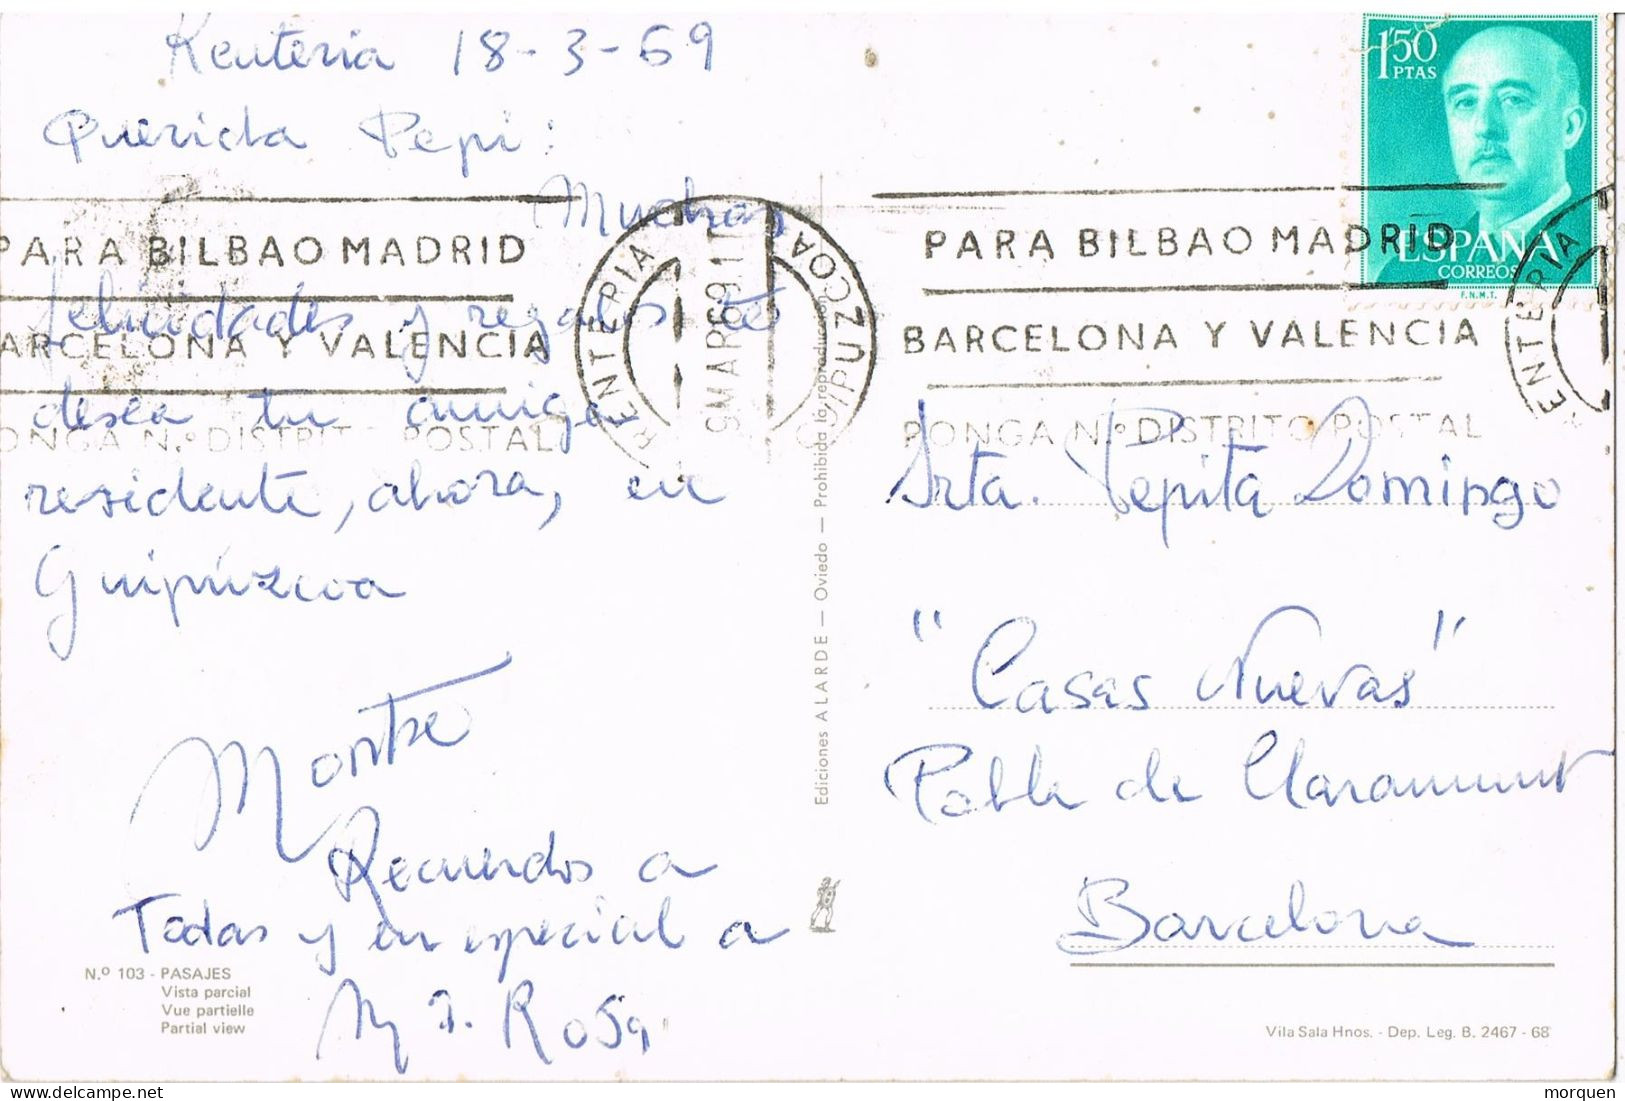 Rentería 18-3-69
Querida Pepi:
Muchas
felicidades y regalos te
desea tu amiga
residente, ahora, en
Guipúzcoa
Montse
Recuerdos a
Todas y en especial a
M ª. Rosa
N.º 103 - PASAJES
Vista parcial
Vue partielle
Partial view
PARA BILBAO MADRID
BARCELONA Y VALENCIA
PONGA N.º DISTRITO POSTAL
ENTERIA
GUIPUZCOA
MAR 69
Ediciones ALARDE — Oviedo — Prohibida la reproducción
1'50
PTAS
ESPAÑA
CORREOS
F.N.M.T.
PARA BILBAO MADRID
BARCELONA Y VALENCIA
PONGA N.º DISTRITO POSTAL
ENTERIA
Srta. Pepita Domingo
"Casas Nuevas"
Pobla de Claramunt
Barcelona
Vila Sala Hnos. - Dep. Leg. B. 2467 - 68
morquen